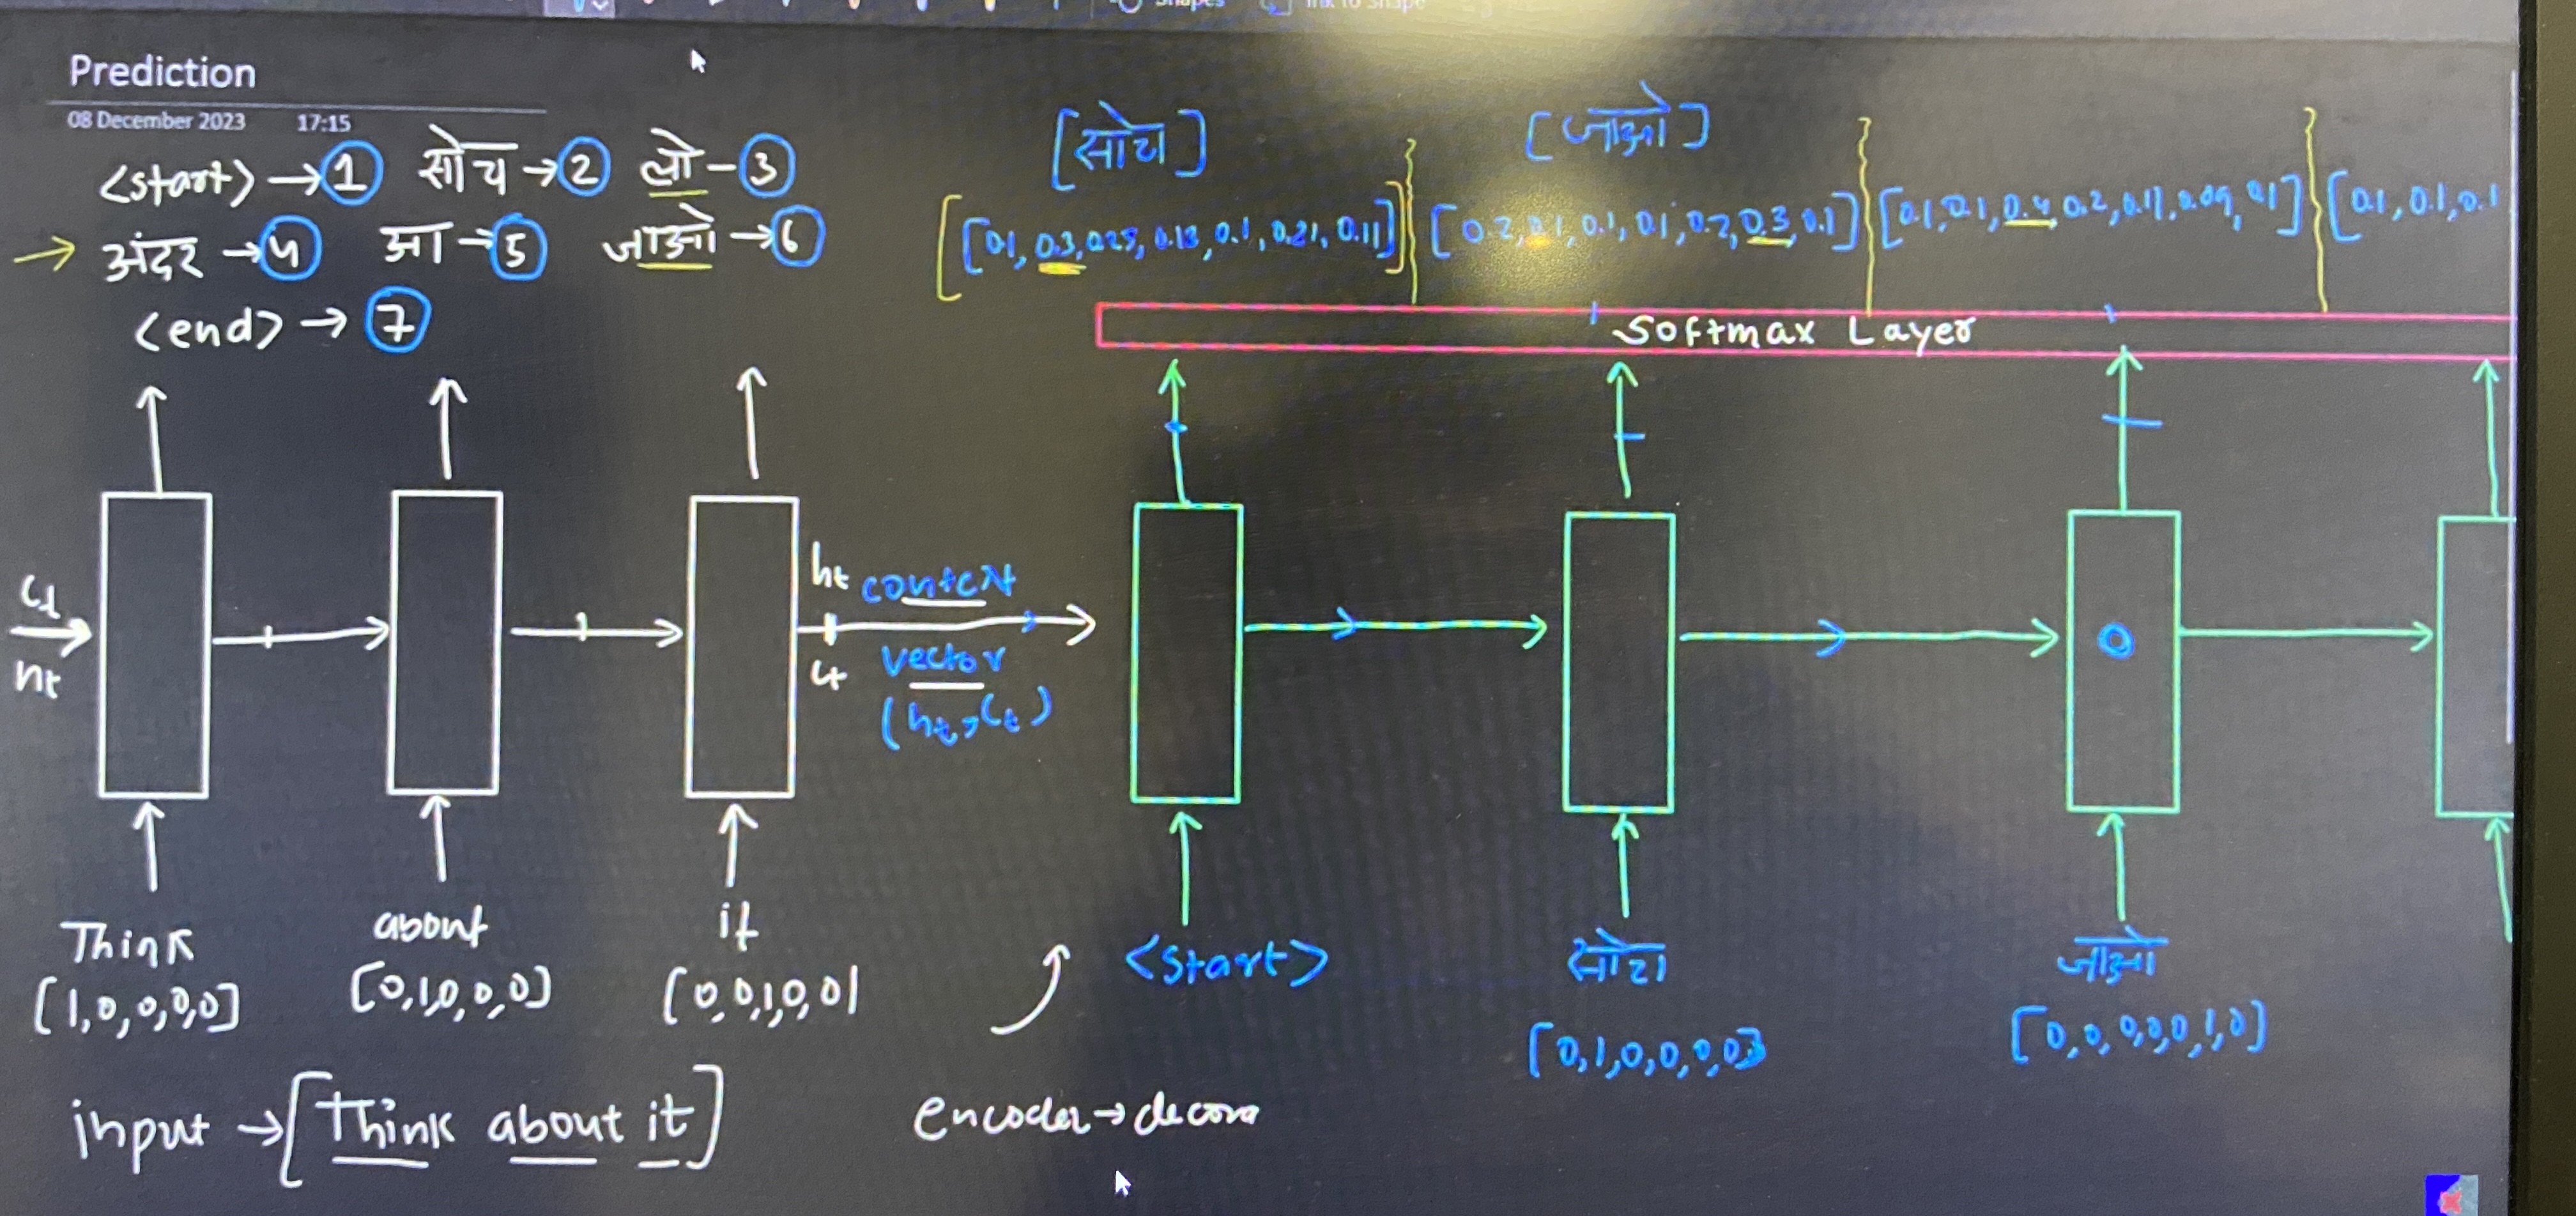 Prediction
08 December 2023 17:15
<start> → 1 सोच → 2 लो - 3
→ अंदर → 4 आ → 5 जाओ → 6
<end> → 7
[सोच] [जाओ]
[[0.1, 0.3, 0.25, 0.18, 0.1, 0.21, 0.11]] [0.2, 0.1, 0.1, 0.1, 0.2, 0.3, 0.1] [0.1, 0.1, 0.4, 0.2, 0.11, 0.09, 0.1] [0.1, 0.1, 0.1
Softmax Layer
ht context
ct vector
(ht, ct)
Think about it
[1,0,0,0,0] [0,1,0,0,0] [0,0,1,0,0]
<start> सोच जाओ
[0,1,0,0,0,0] [0,0,0,0,0,1,0]
input → [Think about it]
encoder →